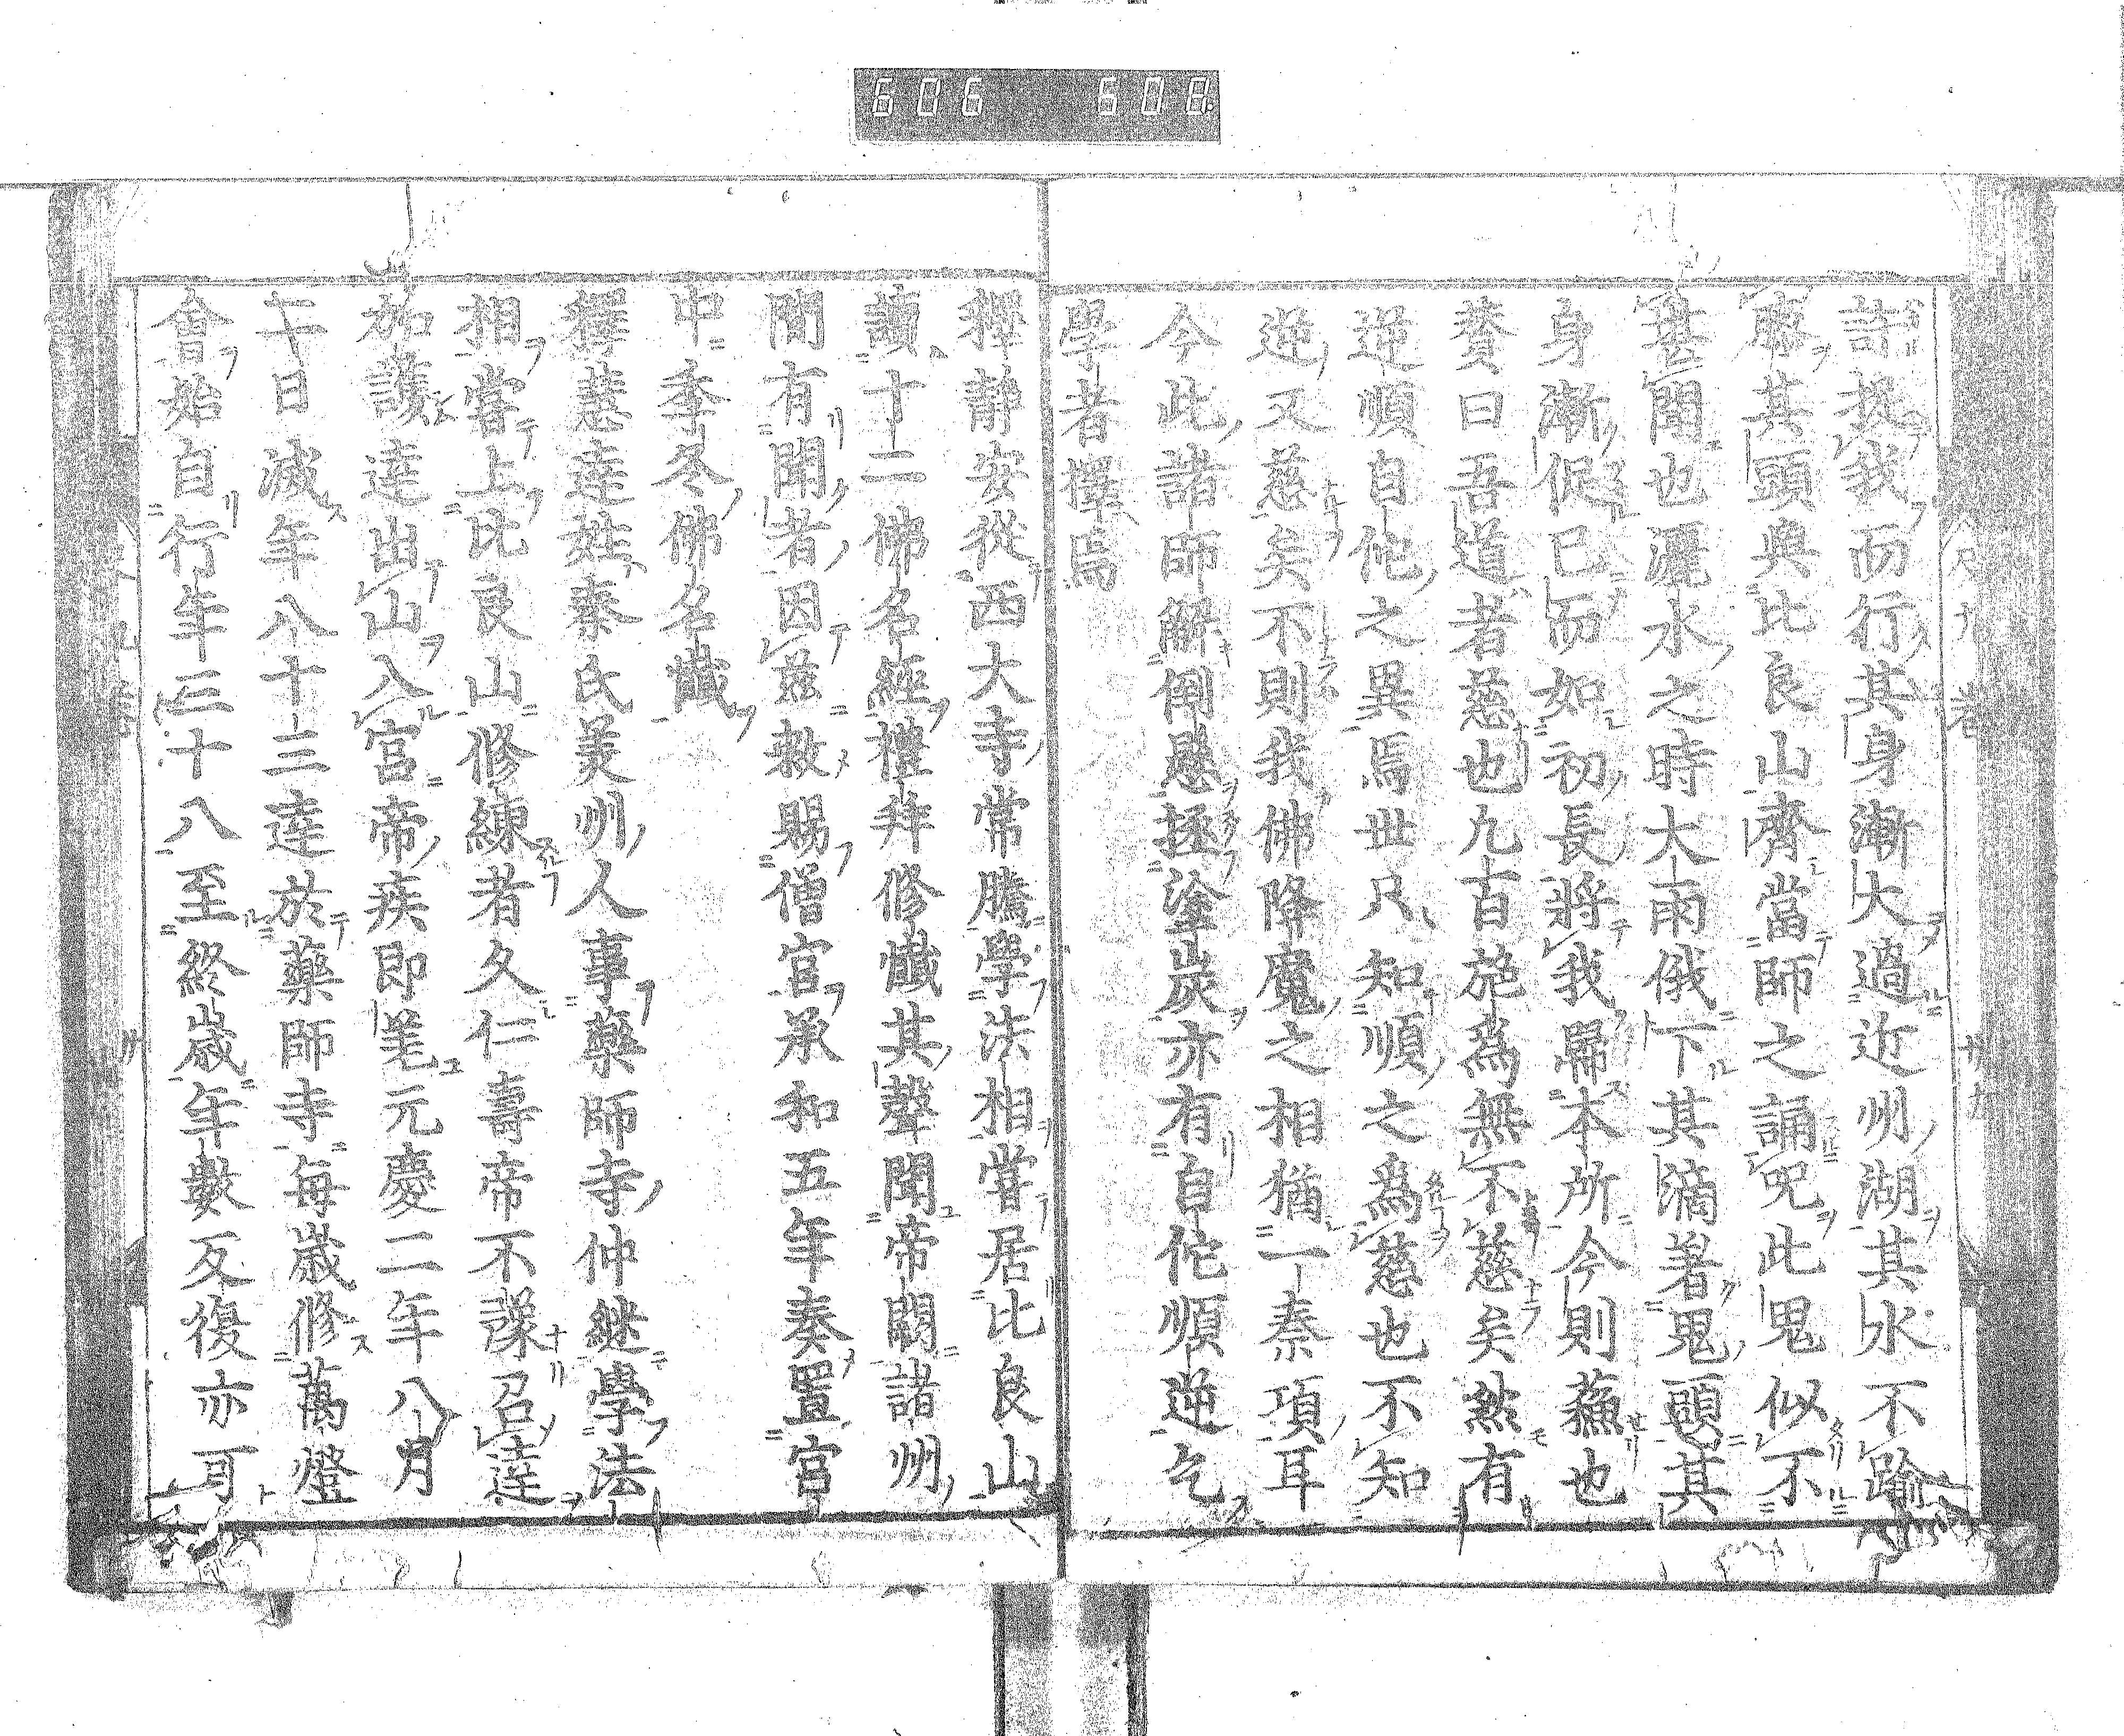 606 608
許投我而行其身漸大過近州湖其水不踰
其頭與比良山齊當師之誦呪此鬼似不
甚聞也灑水之時大雨俄下其滴著鬼頭其
身漸促已而如初長將我歸本所今則蘓也
賛曰吾道者慈也凢百施爲無不慈矣然有
逆順自佗之異焉世只知順之爲慈也不知
逆又慈矣不則我佛降魔之相猶一秦項耳
今此諸師解倒懸拯塗炭亦有自佗順逆乞
學者擇焉
釋靜安從西大寺常騰學法相甞居比良山
讀十二佛名經禮拜修懺其聲聞帝闕諸州
間有聞者因茲敕賜僧官承和五年奏置宮
中季冬佛名懺
釋慧達姓秦氏美州人事藥師寺仲継學法
相甞上比良山修練者久仁壽帝不豫召達
加護達出山入宮帝疾即差元慶二年八月
二十日滅年八十三達於藥師寺每歲修萬燈
會始自行年三十八至終歲年數反復亦可